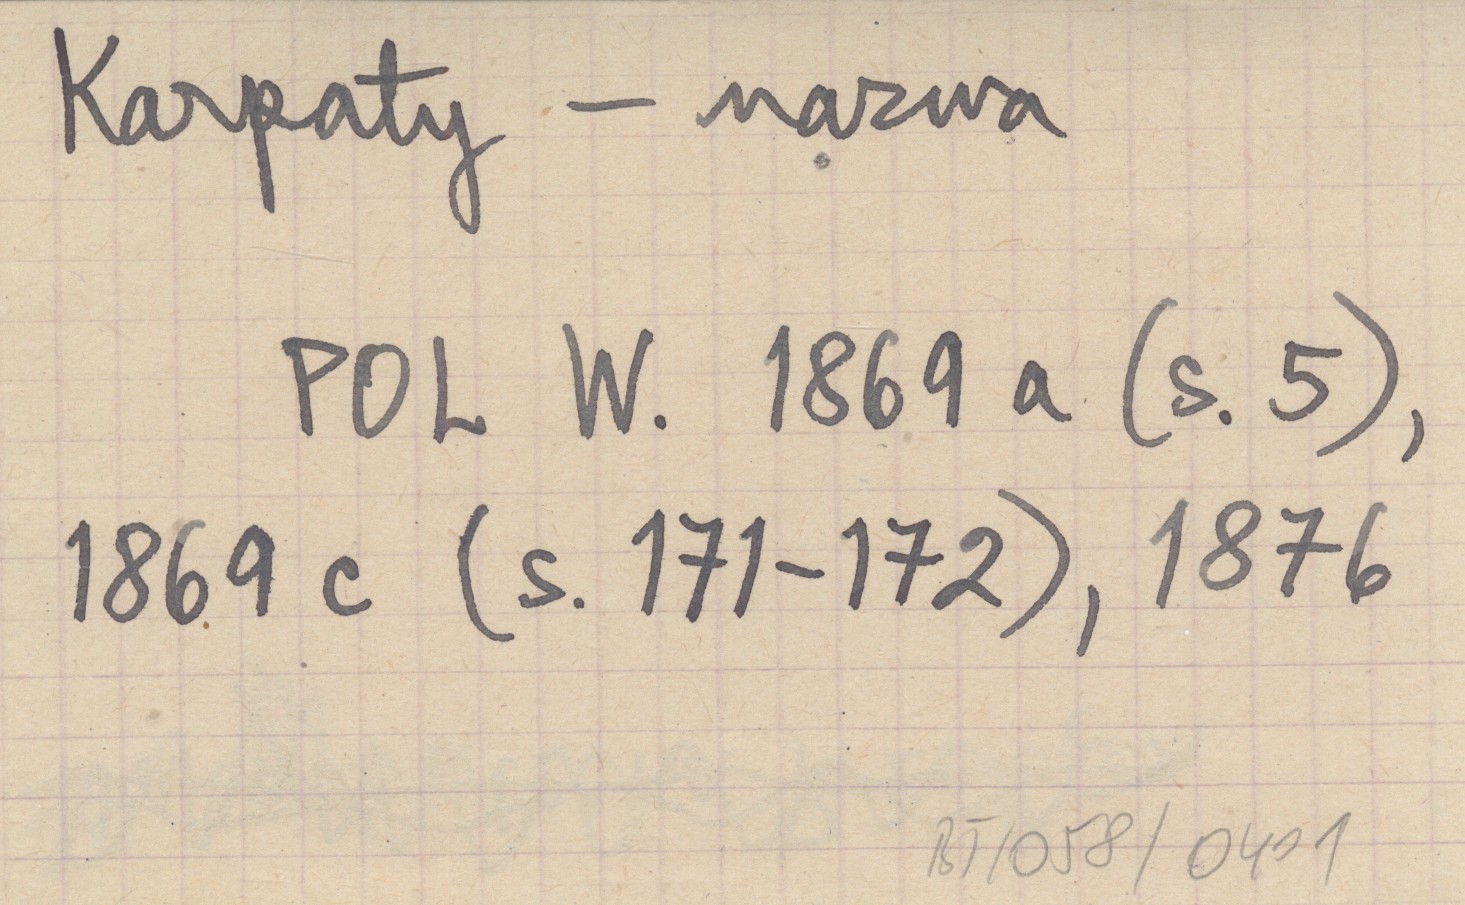 Karpaty – nazwa
POL W. 1869 a (s. 5),
1869 c (s. 171-172), 1876
BT/058/